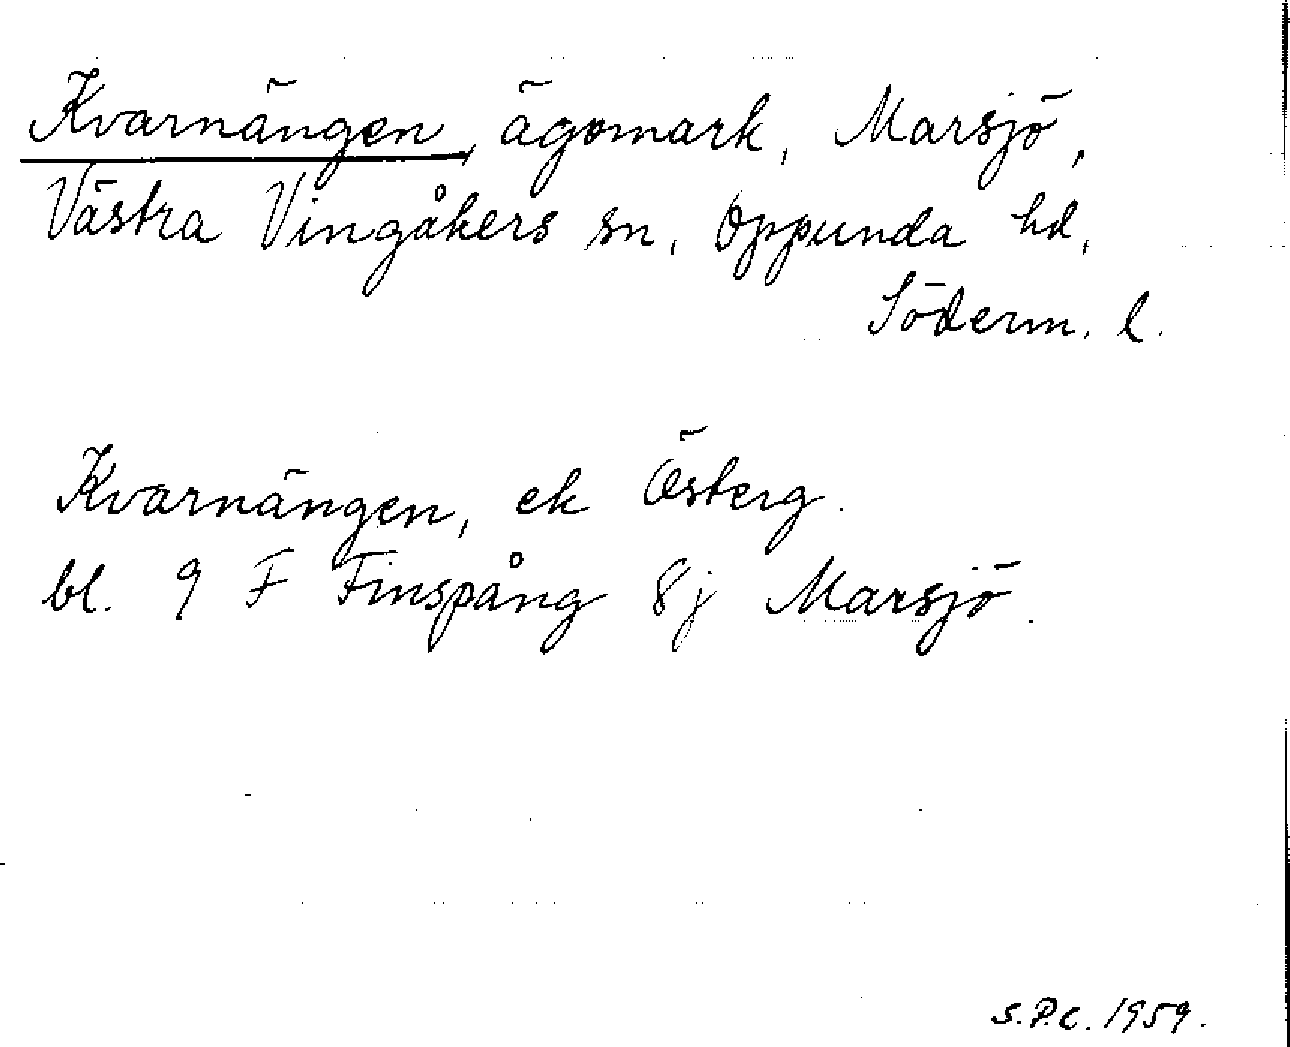 Kvarnängen, ägomark, Marsjö,
Västra Vingåkers sn, Oppunda hd,
Söderm. l.
Kvarnängen, ek Österg.
bl. 9 F Finspång 8j Marsjö.
S.P.C. 1959.